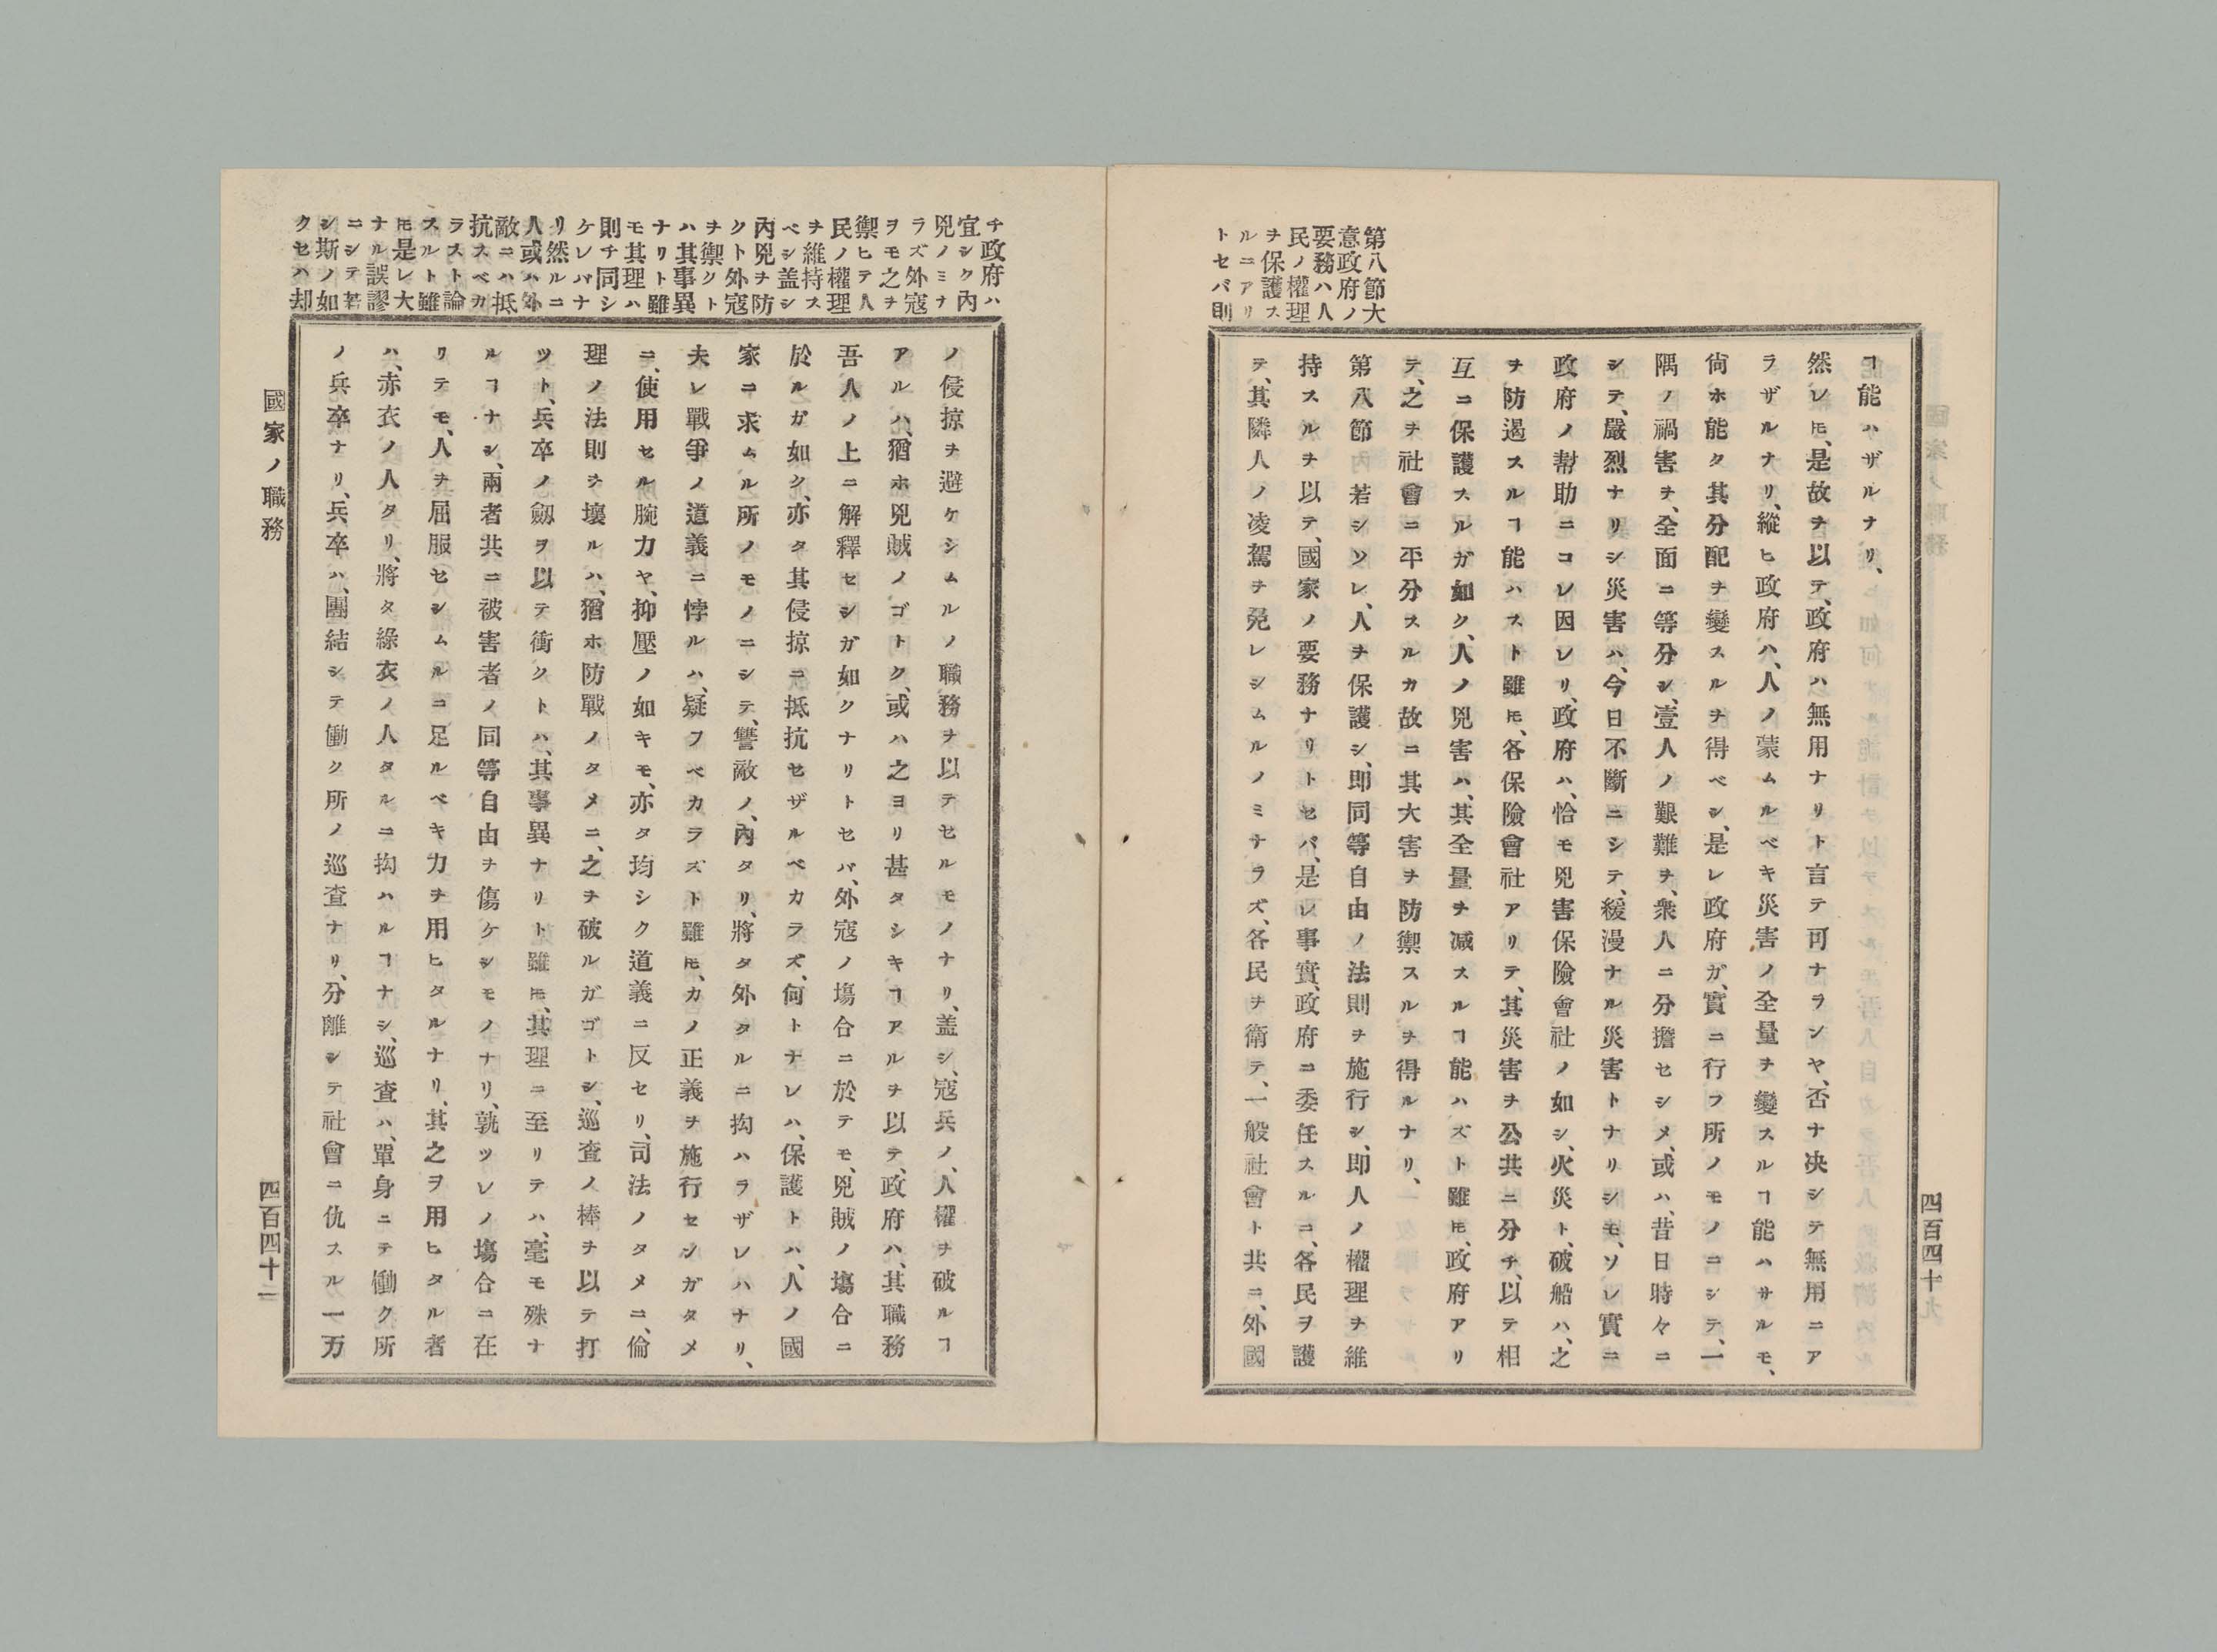 第八節大
意政府ノ
要務ハ人
民ノ權理
ヲ保護ス
ルニアリ
トセバ則
ヿ能ハザルナリ、
然レ𪜈、是故ヲ以テ、政府ハ無用ナリト言テ可ナランヤ、否ナ决シテ無用ニア
ラザルナリ、縱ヒ政府ハ、人ノ蒙ムルベキ災害ノ全量ヲ變スルヿ能ハサルモ、
尙ホ能ク其分配ヲ變スルヲ得ベシ、是レ政府ガ、實ニ行フ所ノモノニシテ、一
隅ノ禍害ヲ、全面ニ等分シ、壹人ノ艱難ヲ、衆人ニ分擔セシメ、或ハ、昔日時々ニ
シテ、嚴烈ナリシ災害ハ、今日不斷ニシテ、緩漫ナル災害トナリシモ、ソレ實ニ
政府ノ幇助ニコレ因レリ、政府ハ、恰モ兇害保險會社ノ如シ、火災ト、破船ハ、之
ヲ防遏スルヿ能ハスト雖𪜈、各保險會社アリテ、其災害ヲ公共ニ分チ、以テ相
互ニ保護スルガ如ク、人ノ兇害ハ、其全量ヲ减スルヿ能ハズト雖𪜈、政府アリ
テ、之ヲ社會ニ平分スルカ故ニ其大害ヲ防禦スルヲ得ルナリ、
第八節 若シソレ、人ヲ保護シ、即同等自由ノ法則ヲ施行シ、即人ノ權理ヲ維
持スルヲ以テ、國家ノ要務ナリトセバ、是レ事實、政府ニ委任スルニ、各民ヲ護
テ、其隣人ノ凌駕ヲ免レシムルノミナラズ、各民ヲ衛テ、一般社會ト共ニ、外國
四百四十
チ政府ハ
宜シク內
兇ノミナ
ラズ外寇
ヲモ之ヲ
禦ヒテ人
民ノ權理
ヲ維持ス
ベシ盖シ
內兇ヲ防
クト外寇
ヲ禦クト
ハ其事異
ナリト雖
モ其理ハ
則チ同シ
ケレバナ
リ然ルニ
人或ハ外
敵ニハ抵
抗スベカ
ラスト論
スルト雖
𪜈是レ大
ナル誤謬
ニシテ若
シ斯ノ如
クセハ却
ノ侵掠ヲ避ケシムルノ職務ヲ以テセルモノナリ、盖シ、寇兵ノ、人權ヲ破ルヿ
アルハ、猶ホ兇賊ノゴトク、或ハ之ヨリ甚タシキヿアルヲ以テ、政府ハ、其職務
吾人ノ上ニ解釋セシガ如クナリトセバ、外寇ノ塲合ニ於テモ、兇賊ノ塲合ニ
於ルガ如ク、亦タ其侵掠ニ抵抗セザルベカラズ、何トナレハ、保護トハ、人ノ國
家ニ求ムル所ノモノニシテ、讐敵ノ、內タリ、將タ外タルニ拘ハラザレハナリ、
夫レ戰爭ノ道義ニ悖ルハ、疑フベカラズト雖𪜈、カノ正義ヲ施行センガタメ
ニ、使用セル腕力ヤ、抑壓ノ如キモ、亦タ均シク道義ニ反セリ、司法ノタメニ、倫
理ノ法則ヲ壞ルハ、猶ホ防戰ノタメニ、之ヲ破ルガゴトシ、巡査ノ棒ヲ以テ打
ツト、兵卒ノ劔ヲ以テ衝クトハ、其事異ナリト雖𪜈、其理ニ至リテハ、毫モ殊ナ
ルヿナシ、兩者共ニ被害者ノ同等自由ヲ傷ケシモノナリ、孰ツレノ塲合ニ在
リテモ、人ヲ屈服セシムルニ足ルベキ力ヲ用ヒタルナリ、其之ヲ用ヒタル者
ハ、赤衣ノ人タリ、將タ綠衣ノ人タルニ拘ハルヿナシ、巡査ハ、單身ニテ働ク所
ノ兵卒ナリ、兵卒ハ、團結シテ働ク所ノ巡査ナリ、分離シテ社會ニ仇スル一万
國家ノ職務
四百四十一